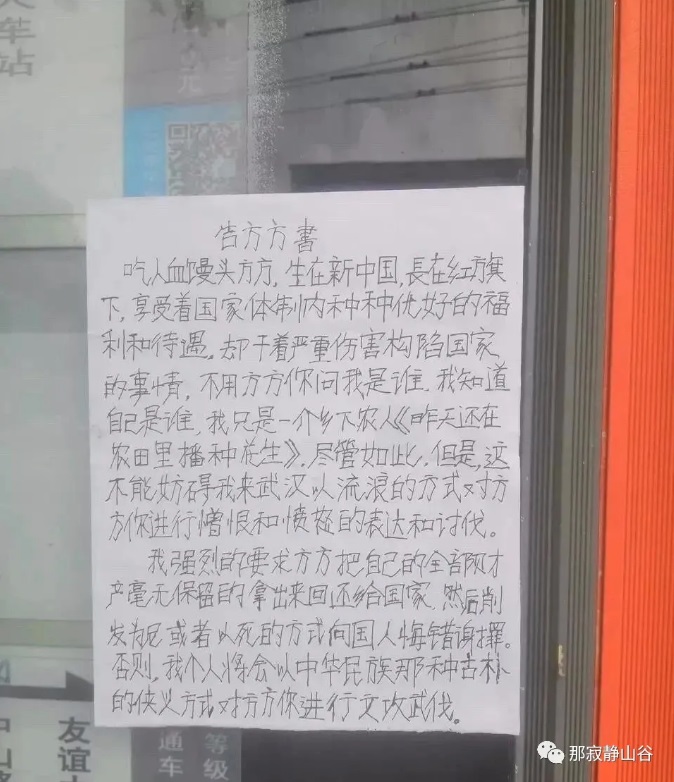 告方方書
吃人血馒头方方,生在新中国,長在红旗
下,享受着国家体制内种种优好的福
利和待遇,却干着严重伤害构陷国家
的事情,不用方方你问我是谁,我知道
自己是谁,我只是一个乡下农人《昨天还在
农田里播种花生》,尽管如此,但是,这
不能妨碍我来武汉以流浪的方式对方
方你进行憎恨和愤怒的表达和讨伐。
我强烈的要求方方把自己的全部财才
产毫无保留的拿出来回还给国家,然后削
发为尼或者以死的方式向国人悔错谢罪。
否则,我个人将会以中华民族那种古朴
的侠义方式对方方你进行文攻武伐。
车站
元
友谊大
通车
等级
中山
那寂静山谷